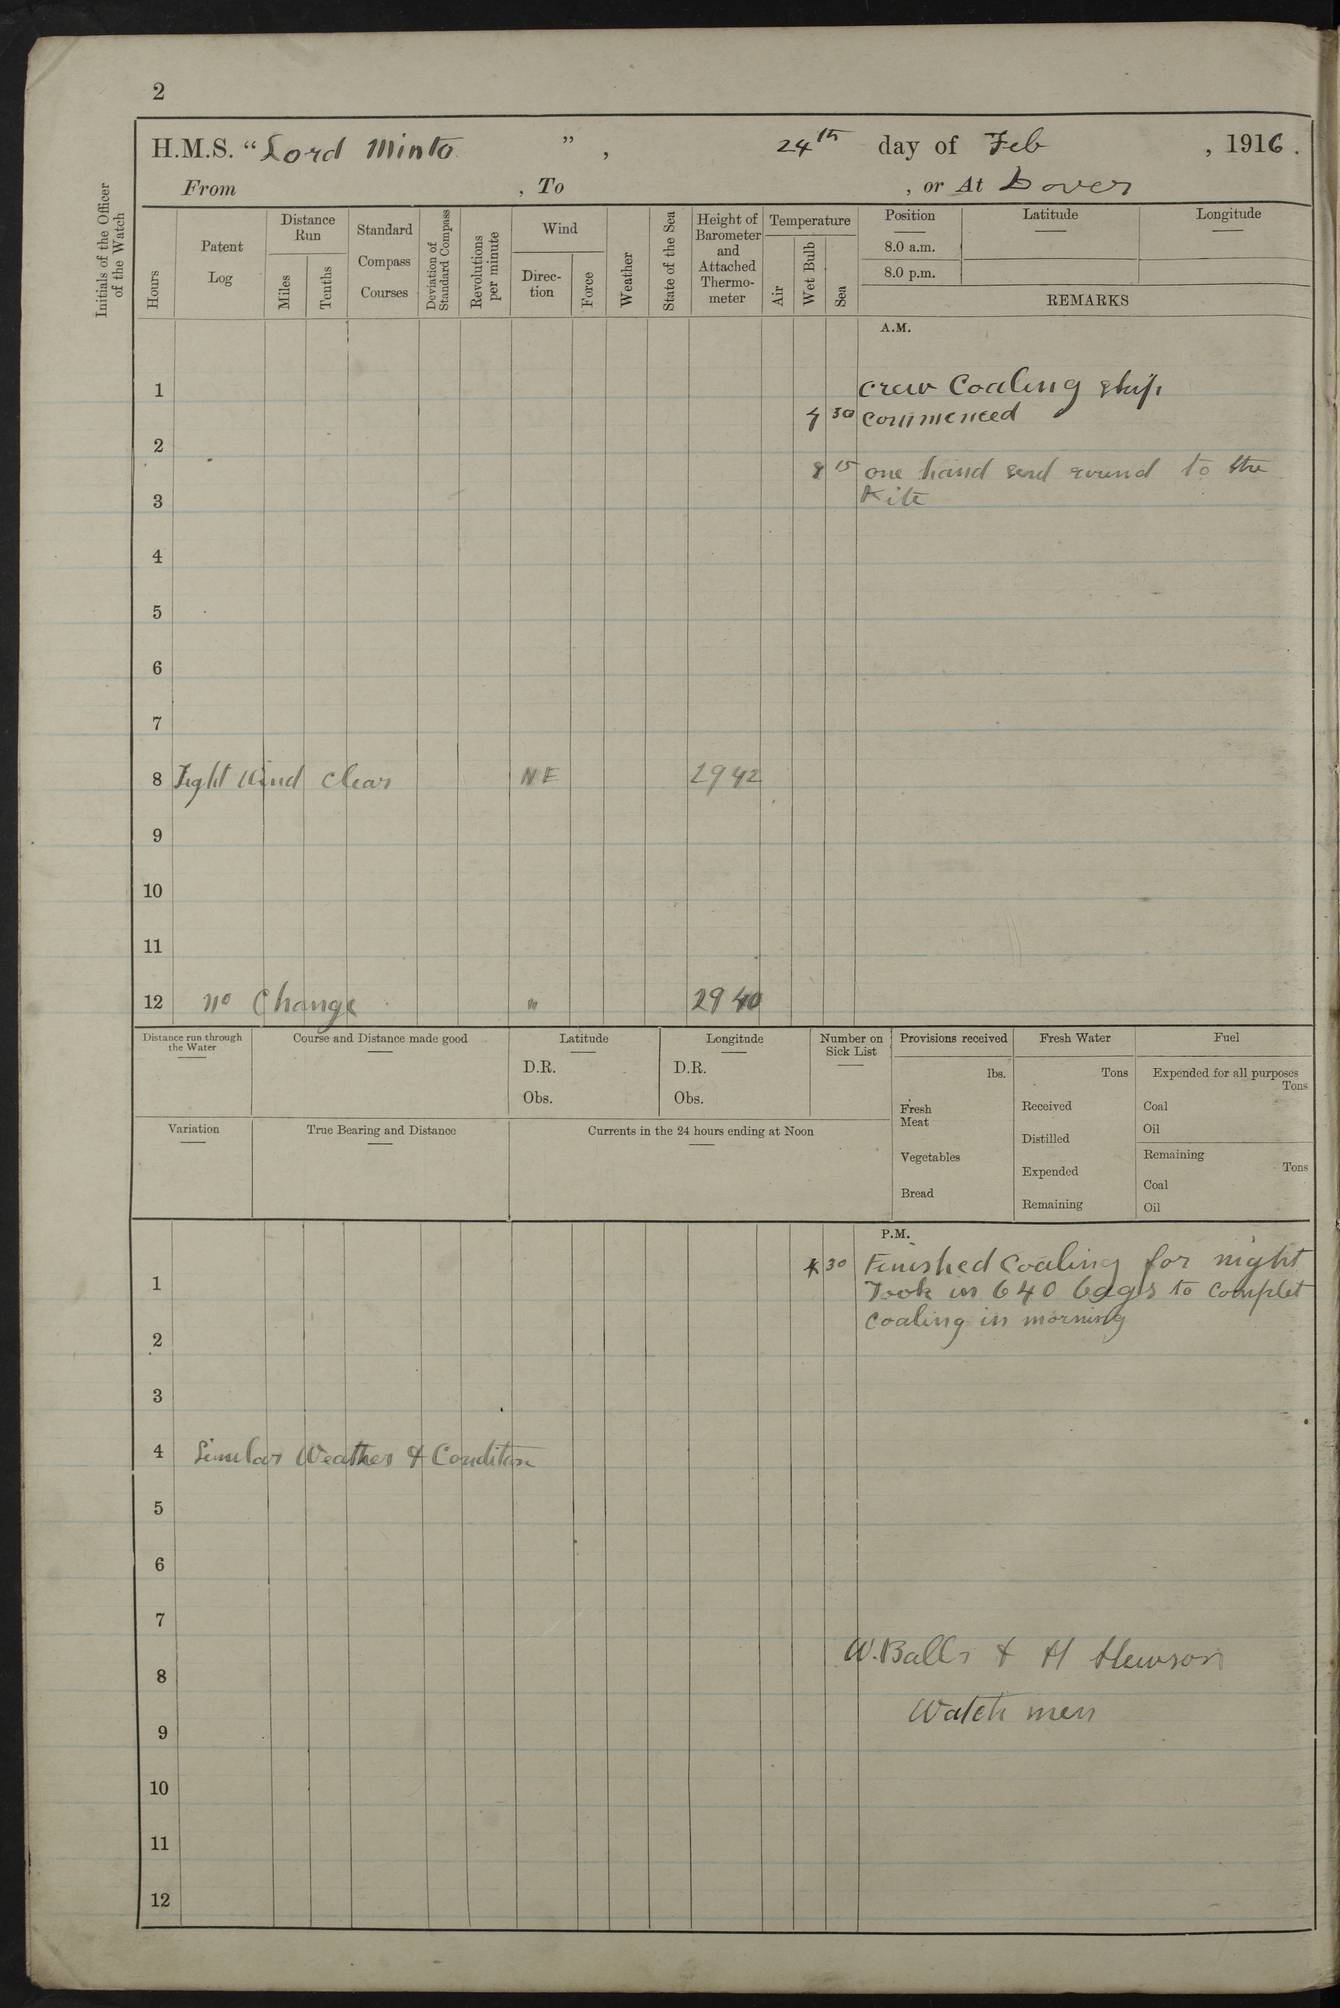 2
H.M.S. "Lord Minto", 24th day of Feb, 1916.
From , To , or At Dover
Initials of the Officer of the Watch
Hours
Patent Log
Distance Run
Miles
Tenths
Standard Compass Courses
Deviation of Standard Compass
Revolutions per minute
Wind
Direc-tion
Force
Weather
State of the Sea
Height of Barometer and Attached Thermo-meter
Temperature
Air
Wet Bulb
Sea
Position Latitude Longitude
8.0 a.m.
8.0 p.m.
REMARKS
A.M.
1 crew Coaling ship
30 commenced
2
8 15 one hand send round to the
3 Kite
4
5
6
7
8 Light Wind Clear NE 2942
9
10
11
12 no Change " 2940
Distance run through the Water
Course and Distance made good
Latitude
D.R.
Obs.
Longitude
D.R.
Obs.
Number on Sick List
Provisions received
lbs.
Fresh Meat
Vegetables
Bread
Fresh Water
Tons
Received
Distilled
Expended
Remaining
Fuel
Expended for all purposes
Tons
Coal
Oil
Remaining
Tons
Coal
Oil
Variation
True Bearing and Distance
Currents in the 24 hours ending at Noon
P.M.
4 30 Finished Coaling for night
1 Took in 640 bags to complet
coaling in morning
2
3
4 Similar Weather & Condition
5
6
7
W. Balls & H Hewson
8
Watch men
9
10
11
12